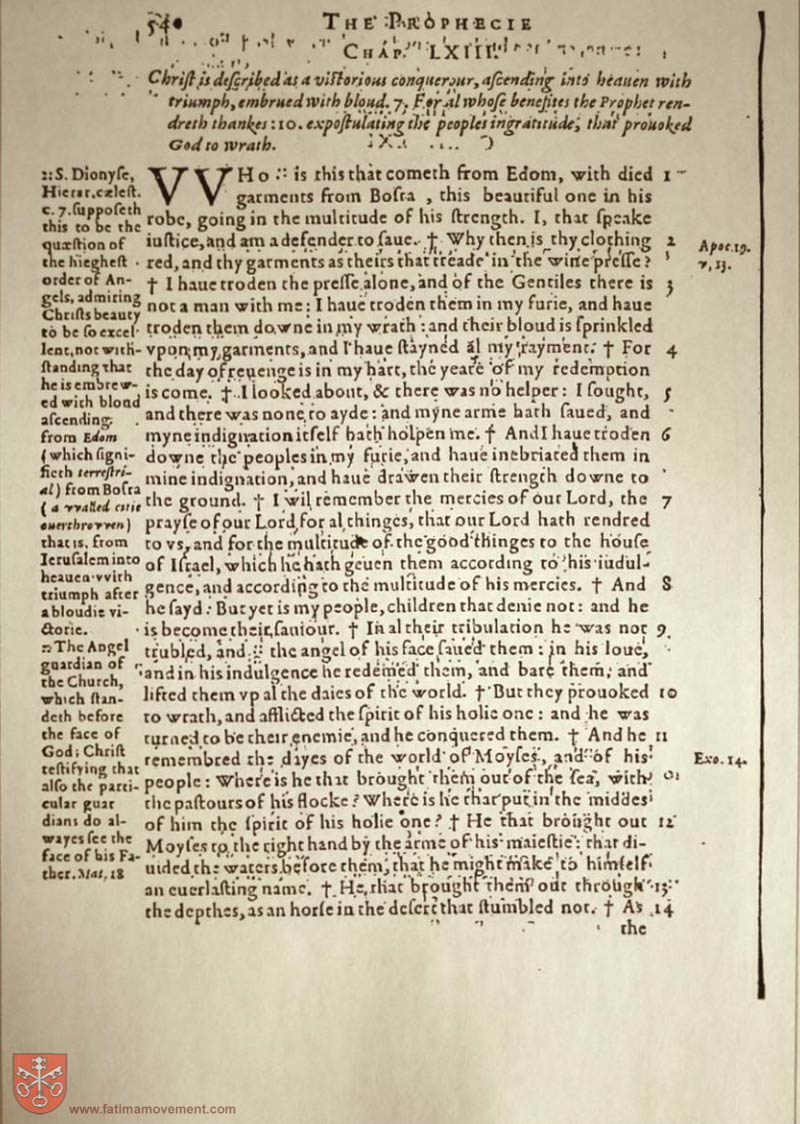 540 THE PROPHECIE
CHAP. LXIII.
Chriſt is deſcribed as a victorious conquerour, aſcending into heauen with
triumph, embrued with bloud. 7. For al whoſe benefites the Prophet ren-
dreth thankes: 10. expoſtulating the peoples ingratitude, that prouoked
God to wrath.
VVHo :: is this that cometh from Edom, with died 1
garments from Boſra, this beautiful one in his
robe, going in the multitude of his ſtrength. I, that ſpeake
iuſtice, and am a defender to ſaue. † Why then is thy clothing 2
red, and thy garments as theirs that treade in the wine preſſe?
† I haue troden the preſſe alone, and of the Gentiles there is 3
not a man with me: I haue troden them in my furie, and haue
troden them downe in my wrath: and their bloud is ſprinkled
vpon my garments, and I haue ſtayned al my rayment. † For 4
the day of reuenge is in my hart, the yeare of my redemption
is come. † I looked about, & there was no helper: I ſought, 5
and there was none to ayde: and myne arme hath ſaued, and
myne indignation itſelf hath holpen me. † And I haue troden 6
downe the peoples in my furie, and haue inebriated them in
mine indignation, and haue drawen their ſtrength downe to
the ground. † I wil remember the mercies of our Lord, the 7
prayſe of our Lord for al thinges, that our Lord hath rendred
to vs, and for the multitude of the good thinges to the houſe
of Iſrael, which he hath geuen them according to his indul-
gence, and according to the multitude of his mercies. † And 8
he ſayd: But yet is my people, children that denie not: and he
is become their ſauiour. † In al their tribulation he was not 9
trubled, and :: the angel of his face ſaued them: in his loue,
and in his indulgence he redemed them, and bare them, and
lifted them vp al the daies of the world. † But they prouoked 10
to wrath, and afflicted the ſpirit of his holie one: and he was
turned to be their enemie, and he conquered them. † And he 11
remembred the dayes of the world of Moyſes, and of his
people: Where is he that brought them out of the ſea, with
the paſtours of his flocke? Where is he that put in the middes
of him the ſpirit of his holie one? † He that brought out 12
Moyſes to the right hand by the arme of his maieſtie: that di-
uided the waters before them, that he might make to himſelf
an euerlaſting name. † He that brought them out through 13
the depthes, as an horſe in the deſert that ſtumbled not. † As 14
the
:: S. Dionyſe,
Hierar. cæleſt.
c. 7. ſuppoſeth
this to be the
quæſtion of
the hiegheſt
order of An-
gels, admiring
Chriſts beauty
to be ſo excel-
lent, not with-
ſtanding that
he is embrew-
ed with bloud
aſcending
from Edom
(which ſigni-
fieth terreſtri-
al) from Boſra
(a vvalled citie
ouerthrovven)
that is, from
Ieruſalem into
heauen vvith
triumph after
a bloudie vi-
ctorie.
:: The Angel
guardian of
the Church,
which ſtan-
deth before
the face of
God; Chriſt
teſtifying that
alſo the parti-
cular guar
dians do al-
wayes ſee the
face of his Fa-
ther. Mat. 18
Apoc. 19.
v, 13.
Exo. 14.
www.fatimamovement.com